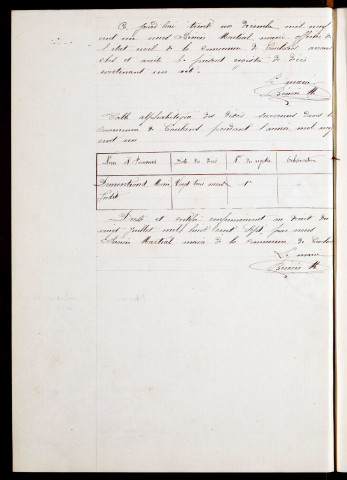 Ce jourd'hui trente un décembre mil neuf
cent un nous Bénéir Martial, maire, officier de
l'état civil de la commune de avons
clos et arrêté le présent registre de décès
contenant un acte.
Le maire
M.
Table alphabétique des décès survenus dans la
commune de pendant l'année mil neuf
cent un
Nom et Prénoms Date des décès N° du registre Observations
Marie Vingt trois 1
Dressé et certifié conformément au décret du
vingt juillet mil huit cent sept, par nous
Martial maire de la commune de
Le maire
M.